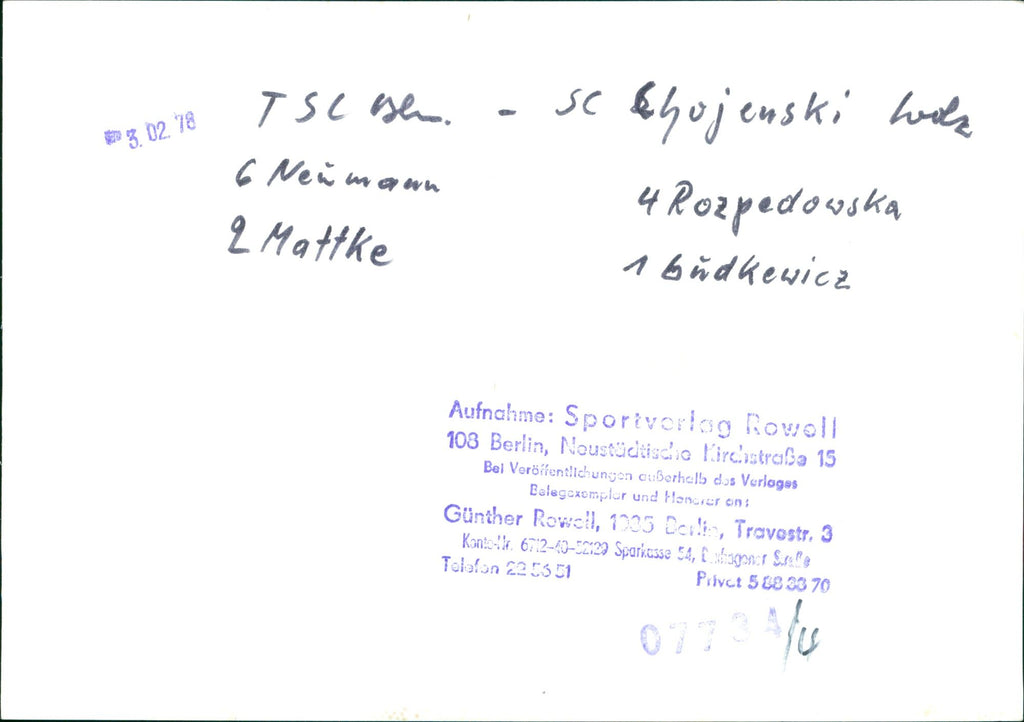 3.02.78
TSC Bln. - SC Chojenski Lodz
6 Neumann
4 Rozpedowska
2 Mattke
1 Budkewicz
Aufnahme: Sportverlag Rowell
108 Berlin, Neustädtische Kirchstraße 15
Bei Veröffentlichungen außerhalb des Verlages
Belegexemplar und Honorar an:
Günther Rowell, 1035 Berlin, Travestr. 3
Konto-Nr. 6712-40-52129 Sparkasse 54, Straße
Telefon 22 56 51 Privat 5 88 33 70
0773 4/4